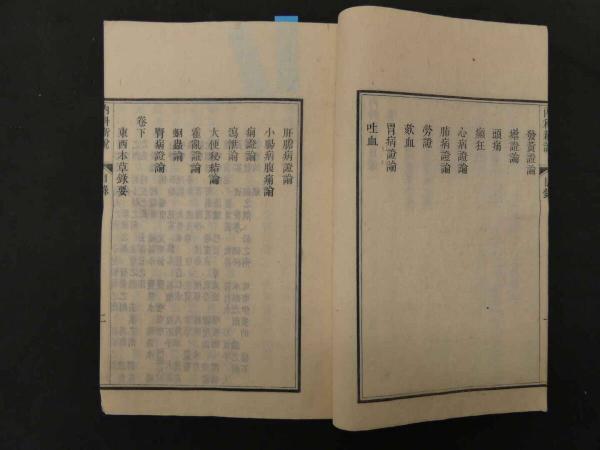 內科新說
目錄
發黃證論
癍證論
頭痛
癲狂
心病證論
肺病證論
勞證
欬血
胃病證論
吐血
肝膽病證論
小腸病腹痛論
痢證論
瀉泄論
大便秘結論
霍亂證論
蛔蟲論
腎病證論
卷下
東西本草錄要
內科新說
目錄
二